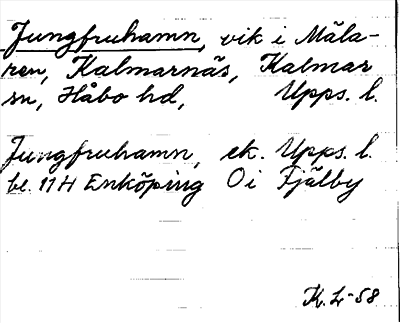 Jungfruhamn, vik i Mäla-
ren, Kalmarnäs, Kalmar
sn, Håbo hd, Upps. l.
Jungfruhamn, ek. Upps. l.
bl. 11H Enköping O i Fjälby
K. L-58